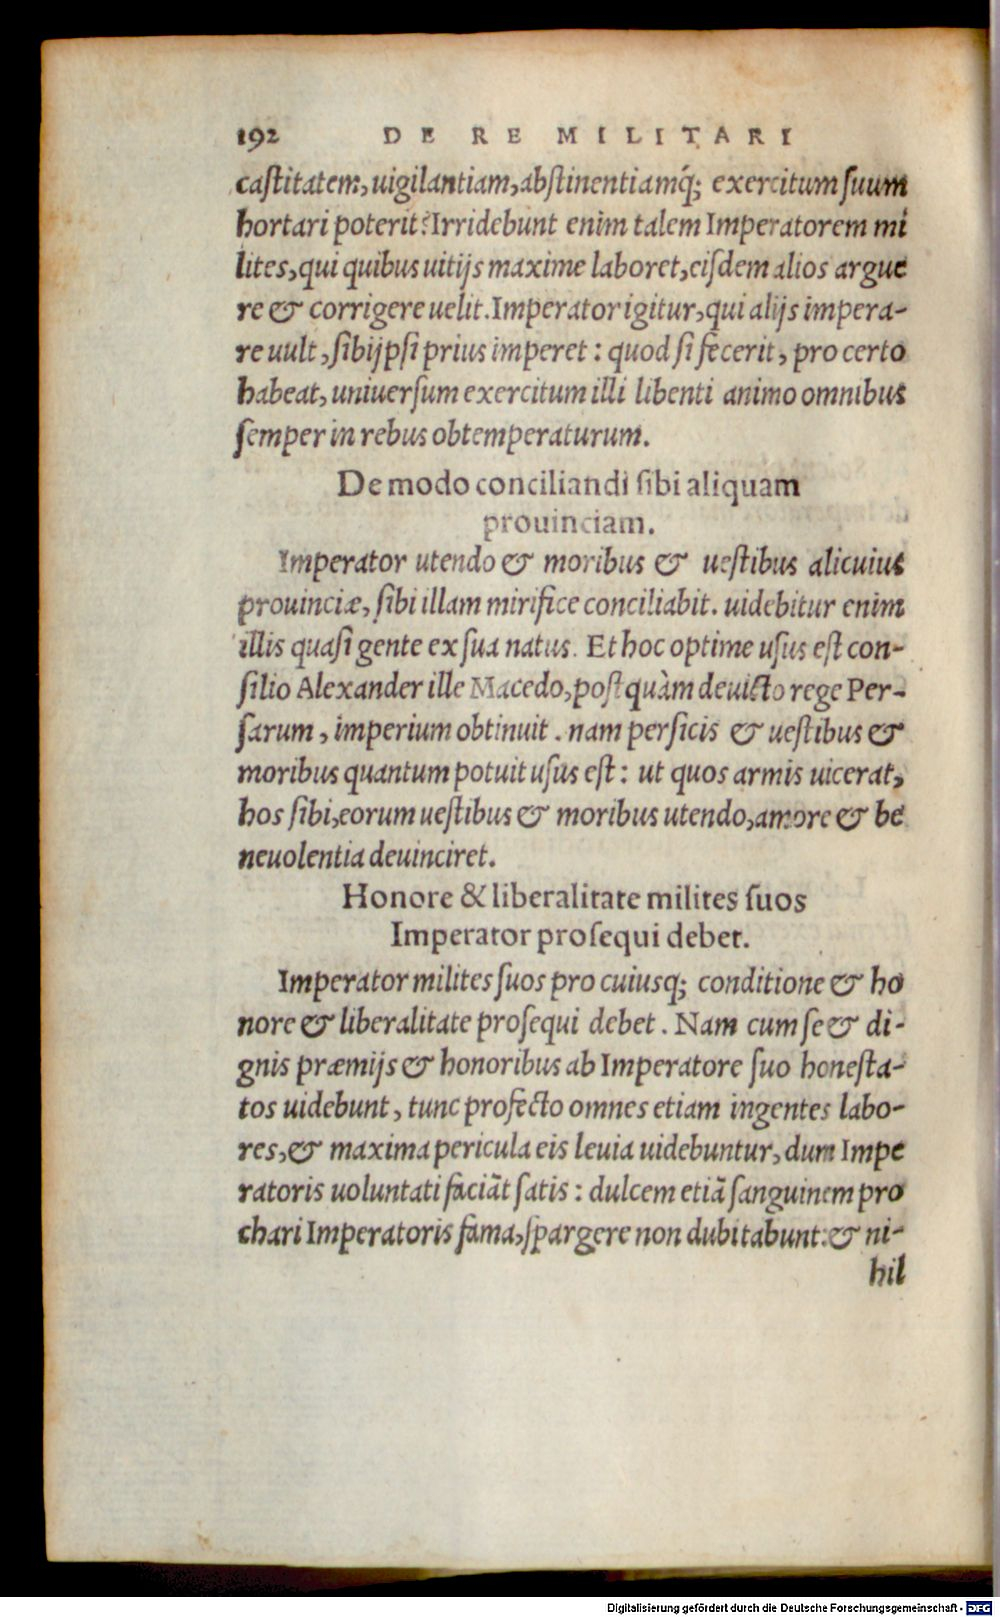 192 DE RE MILITARI
caſtitatem, uigilantiam, abſtinentiamq́; exercitum ſuum
hortari poterit? Irridebunt enim talem Imperatorem mi
lites, qui quibus uitijs maxime laboret, eiſdem alios argue
re & corrigere uelit. Imperator igitur, qui alijs impera-
re uult, ſibijpſi prius imperet: quod ſi fecerit, pro certo
habeat, uniuerſum exercitum illi libenti animo omnibus
ſemper in rebus obtemperaturum.
De modo conciliandi ſibi aliquam
prouinciam.
Imperator utendo & moribus & ueſtibus alicuius
prouinciæ, ſibi illam mirifice conciliabit. uidebitur enim
illis quaſi gente ex ſua natus. Et hoc optime uſus eſt con-
ſilio Alexander ille Macedo, poſtquàm deuicto rege Per-
ſarum, imperium obtinuit. nam perſicis & ueſtibus &
moribus quantum potuit uſus eſt: ut quos armis uicerat,
hos ſibi, eorum ueſtibus & moribus utendo, amore & be
neuolentia deuinciret.
Honore & liberalitate milites ſuos
Imperator proſequi debet.
Imperator milites ſuos pro cuiusq; conditione & ho
nore & liberalitate proſequi debet. Nam cum ſe & di-
gnis præmijs & honoribus ab Imperatore ſuo honeſta-
tos uidebunt, tunc profecto omnes etiam ingentes labo-
res, & maxima pericula eis leuia uidebuntur, dum Impe
ratoris uoluntati faciāt ſatis: dulcem etiā ſanguinem pro
chari Imperatoris fama, ſpargere non dubitabunt: & ni-
hil
Digitalisierung gefördert durch die Deutsche Forschungsgemeinschaft - DFG